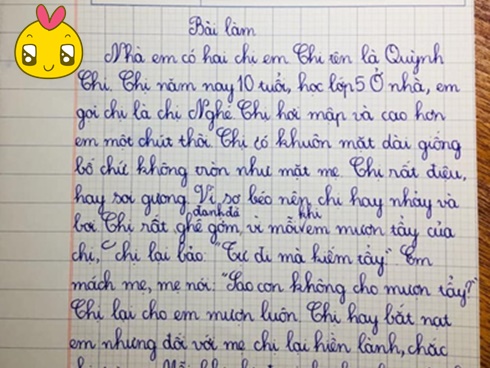 Bài làm
Nhà em có hai chị em Chị tên là Quỳnh
Chi. Chị năm nay 10 tuổi, học lớp 5 Ở nhà, em
gọi chị là chị Nghé Chị hơi mập và cao hơn
em một chút thôi. Chị có khuôn mặt dài giống
bố chứ không tròn như mặt mẹ. Chị rất điệu,
hay soi gương. Vì sợ béo nên chị hay nhảy và
đanh đá khi
bơi Chị rất ghê gớm, vì mỗi em mượn tẩy của
chị, chị lại bảo: "Tự đi mà kiếm tẩy". Em
mách mẹ, mẹ nói: "Sao con không cho mượn tẩy?"
Chị lại cho em mượn luôn Chị hay bắt nạt
em nhưng đối với mẹ chị lại hiền lành, chắc